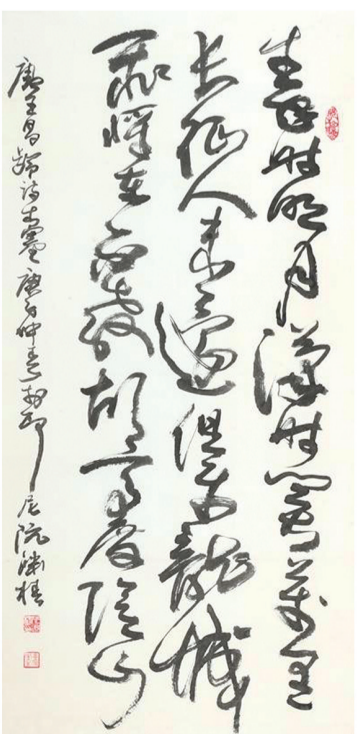 秦時明月漢時關萬里
長征人未還但使龍城
飛將在不教胡馬度陰山
唐王昌齡詩出塞庚子仲春於印尼阮淵椿